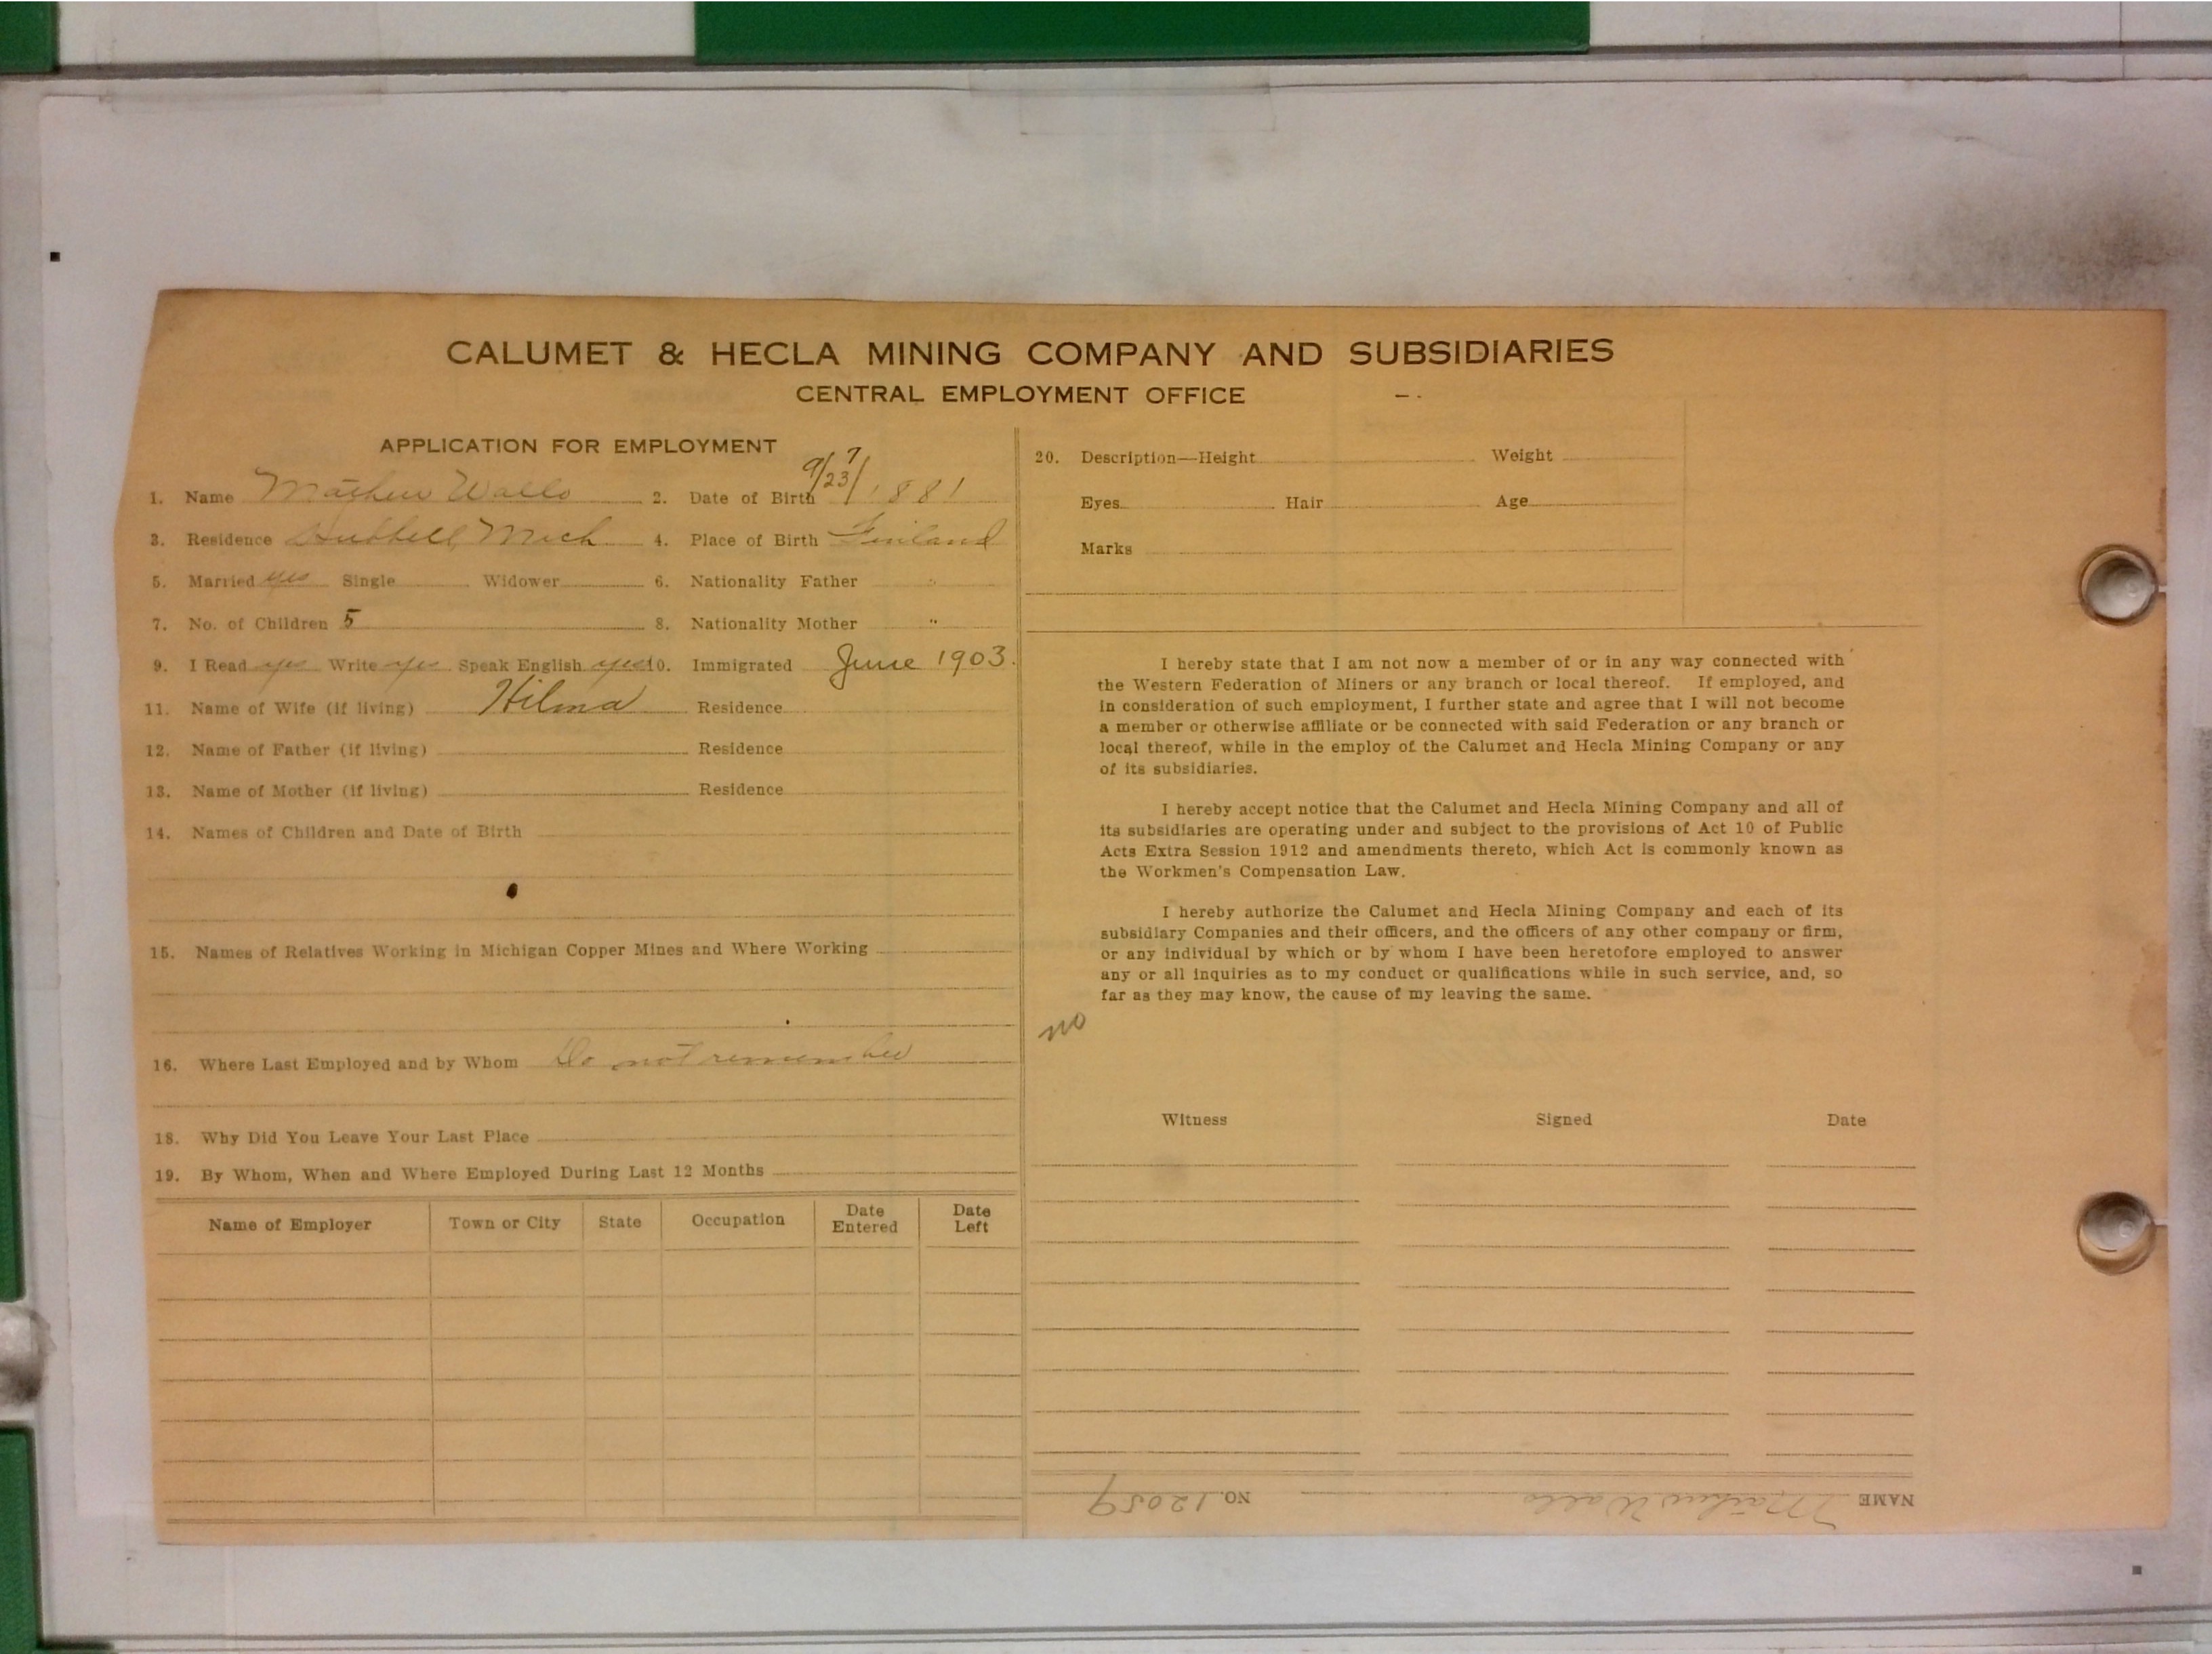 CALUMET & HECLA MINING COMPANY AND SUBSIDIARIES
CENTRAL EMPLOYMENT OFFICE
APPLICATION FOR EMPLOYMENT
1. Name Mathew Wallo 2. Date of Birth 9/23/1881
3. Residence Hubbell, Mich 4. Place of Birth Finland
5. Married yes Single Widower 6. Nationality Father "
7. No. of Children 5 8. Nationality Mother "
9. I Read yes Write yes Speak English yes 10. Immigrated June 1903.
11. Name of Wife (if living) Hilma Residence
12. Name of Father (if living) Residence
13. Name of Mother (if living) Residence
14. Names of Children and Date of Birth
15. Names of Relatives Working in Michigan Copper Mines and Where Working
16. Where Last Employed and by Whom Do not remember
18. Why Did You Leave Your Last Place
19. By Whom, When and Where Employed During Last 12 Months
Name of Employer Town or City State Occupation Date Entered Date Left
20. Description—Height Weight
Eyes Hair Age
Marks
I hereby state that I am not now a member of or in any way connected with
the Western Federation of Miners or any branch or local thereof. If employed, and
in consideration of such employment, I further state and agree that I will not become
a member or otherwise affiliate or be connected with said Federation or any branch or
local thereof, while in the employ of the Calumet and Hecla Mining Company or any
of its subsidiaries.
I hereby accept notice that the Calumet and Hecla Mining Company and all of
its subsidiaries are operating under and subject to the provisions of Act 10 of Public
Acts Extra Session 1912 and amendments thereto, which Act is commonly known as
the Workmen's Compensation Law.
I hereby authorize the Calumet and Hecla Mining Company and each of its
subsidiary Companies and their officers, and the officers of any other company or firm,
or any individual by which or by whom I have been heretofore employed to answer
any or all inquiries as to my conduct or qualifications while in such service, and, so
far as they may know, the cause of my leaving the same.
no
Witness Signed Date
NAME Mathew Wallo NO. 12059